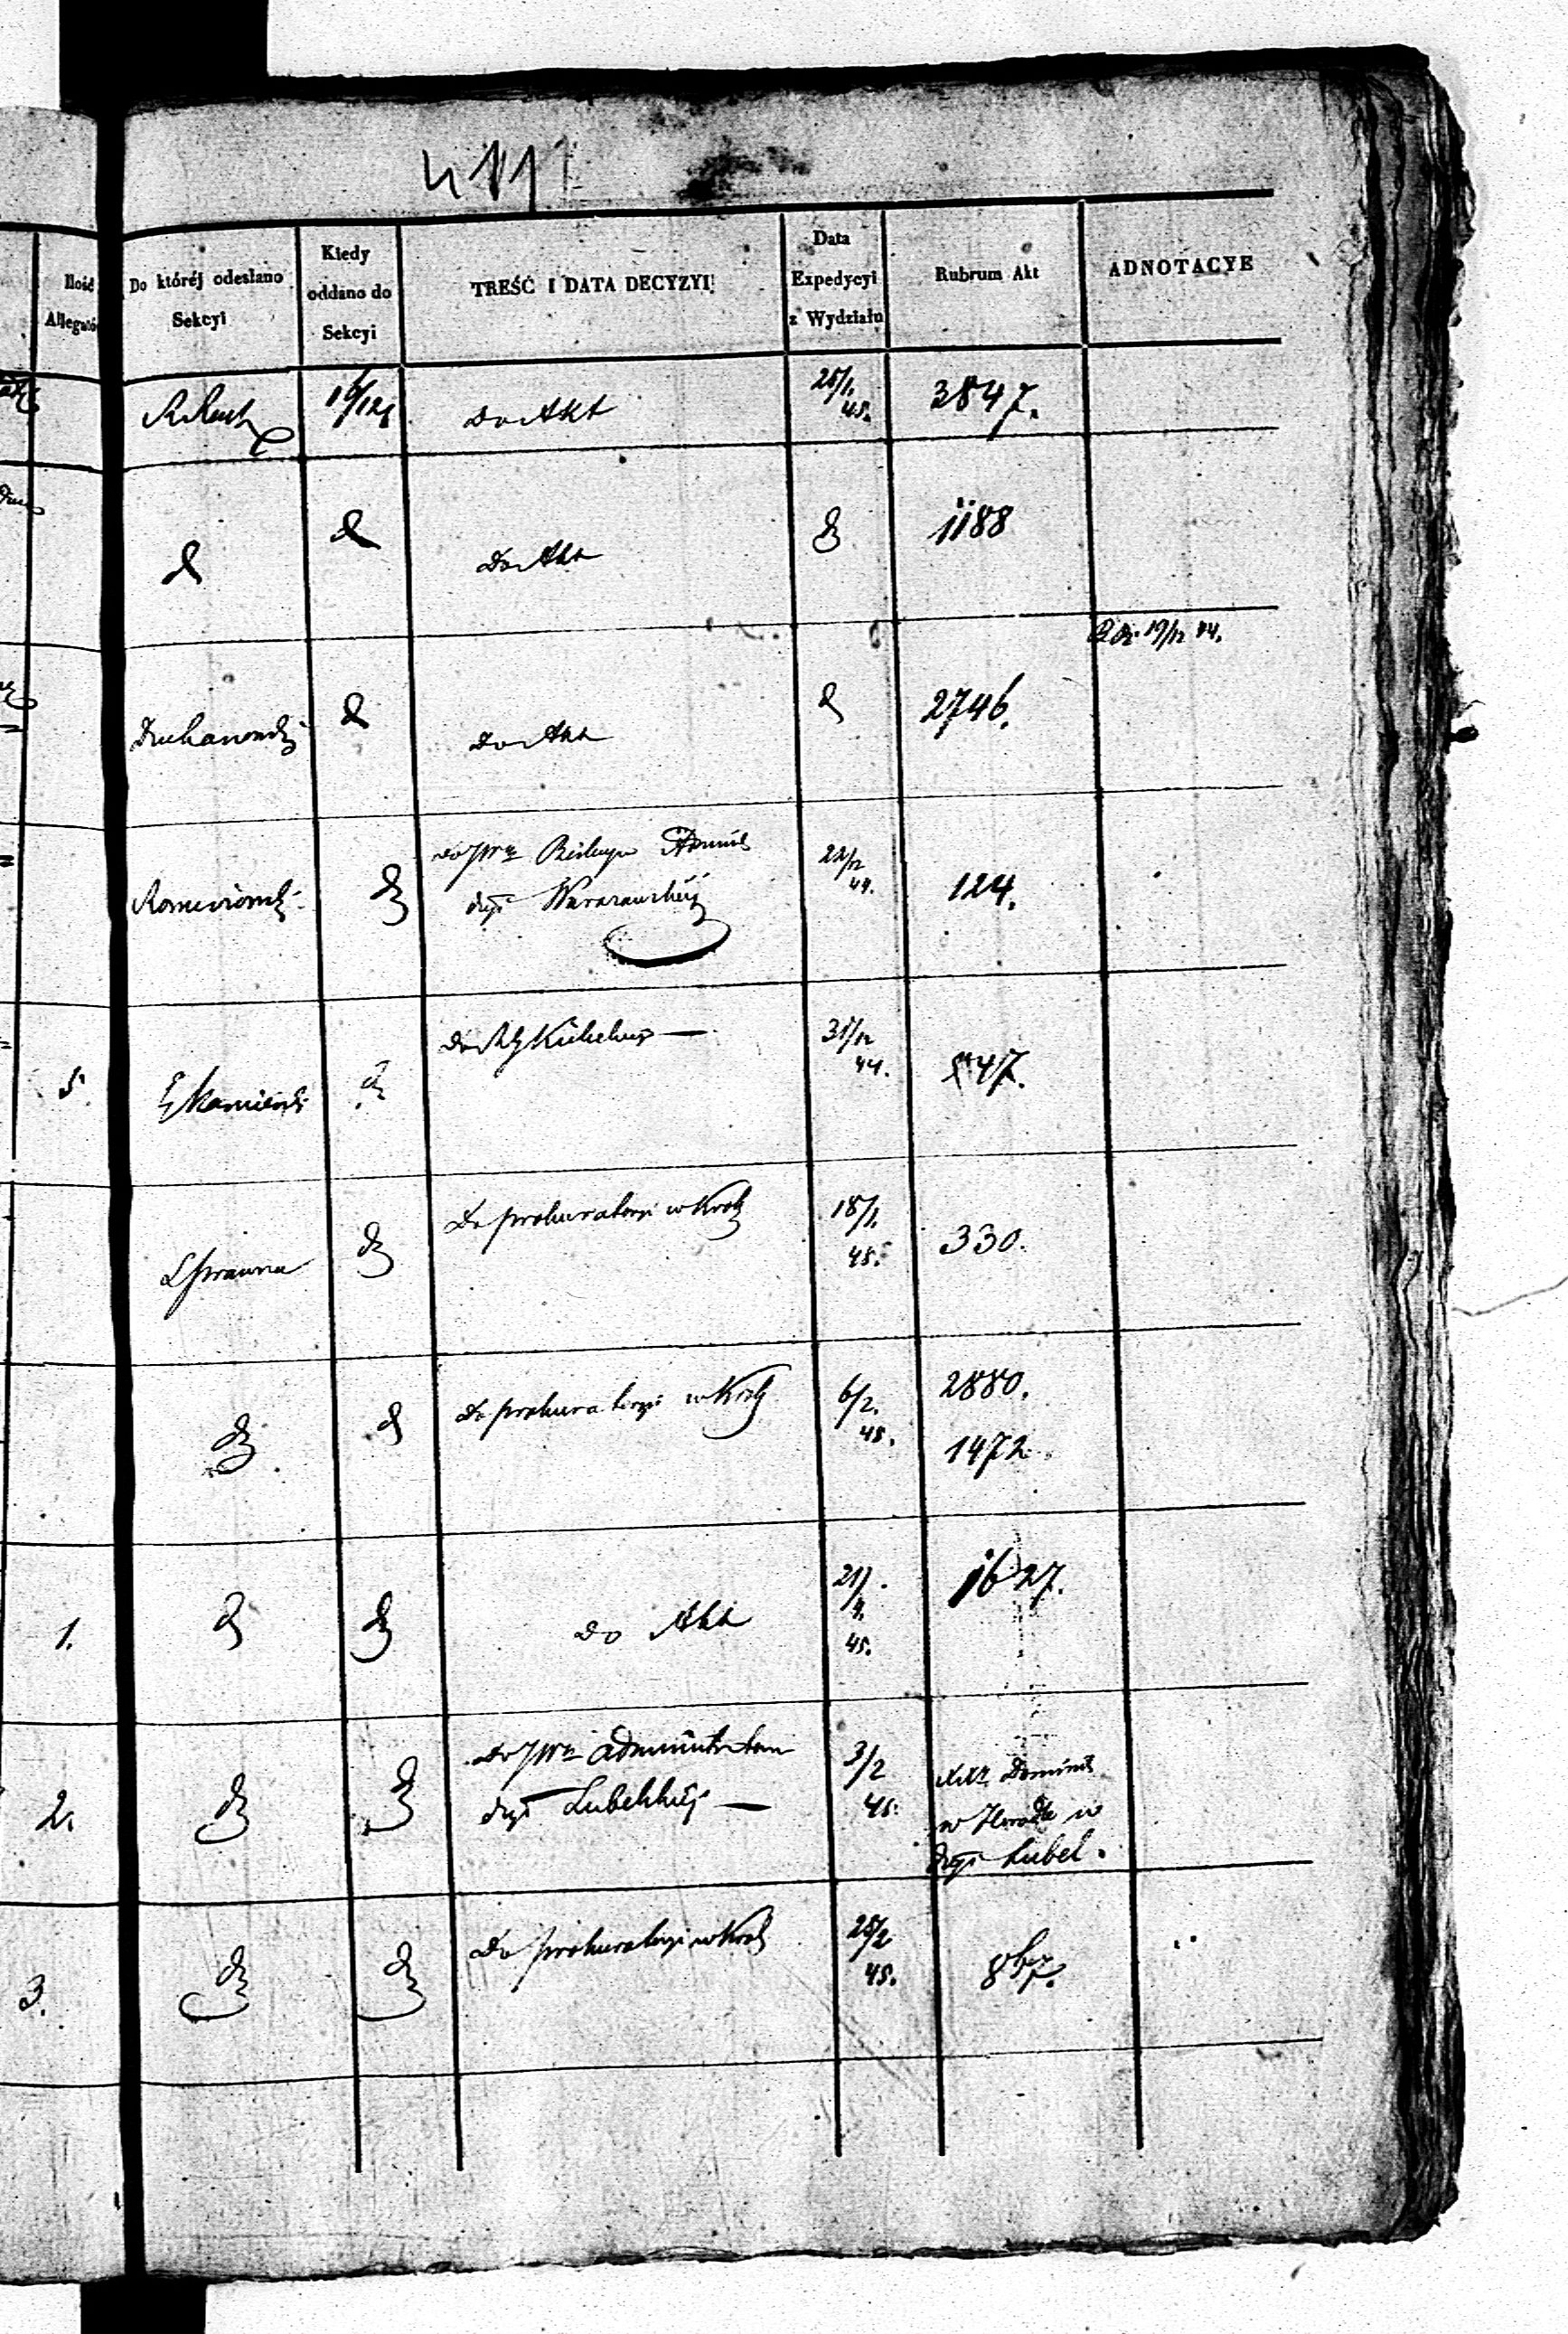 Ilość
Allegatów
Do któréj odesłano
Sekcyi
Kiedy
oddano do
Sekcyi
TREŚĆ I DATA DECYZYI
Data
Expedycyi
z Wydziału
Rubrum Akt
ADNOTACYE
16/12
Do Akt
28/1.
45.
3847.
d
d
Do Akt
d
1188
19/12 44.
d
Do Akt
d
2746.
d
Warszawskiéj
22/12
44.
124.
5.
Kamieński
d
31/12
44.
847.
Sprawna
d
Do prokuratoryi w Król
18/1.
45.
330.
d
d
Do prokuratoryi w Król
6/2.
45.
2880.
1472.
1.
d
d
Do Akt
21/
4.
45.
1627.
2.
d
d
Do JW Administratora
dyi Lubelskiéj —
3/2
45.
XX. Dominik
w Horodle w
dyi Lubel.
3.
d
d
Do prokuratoryi w Król
25/2
45.
867.